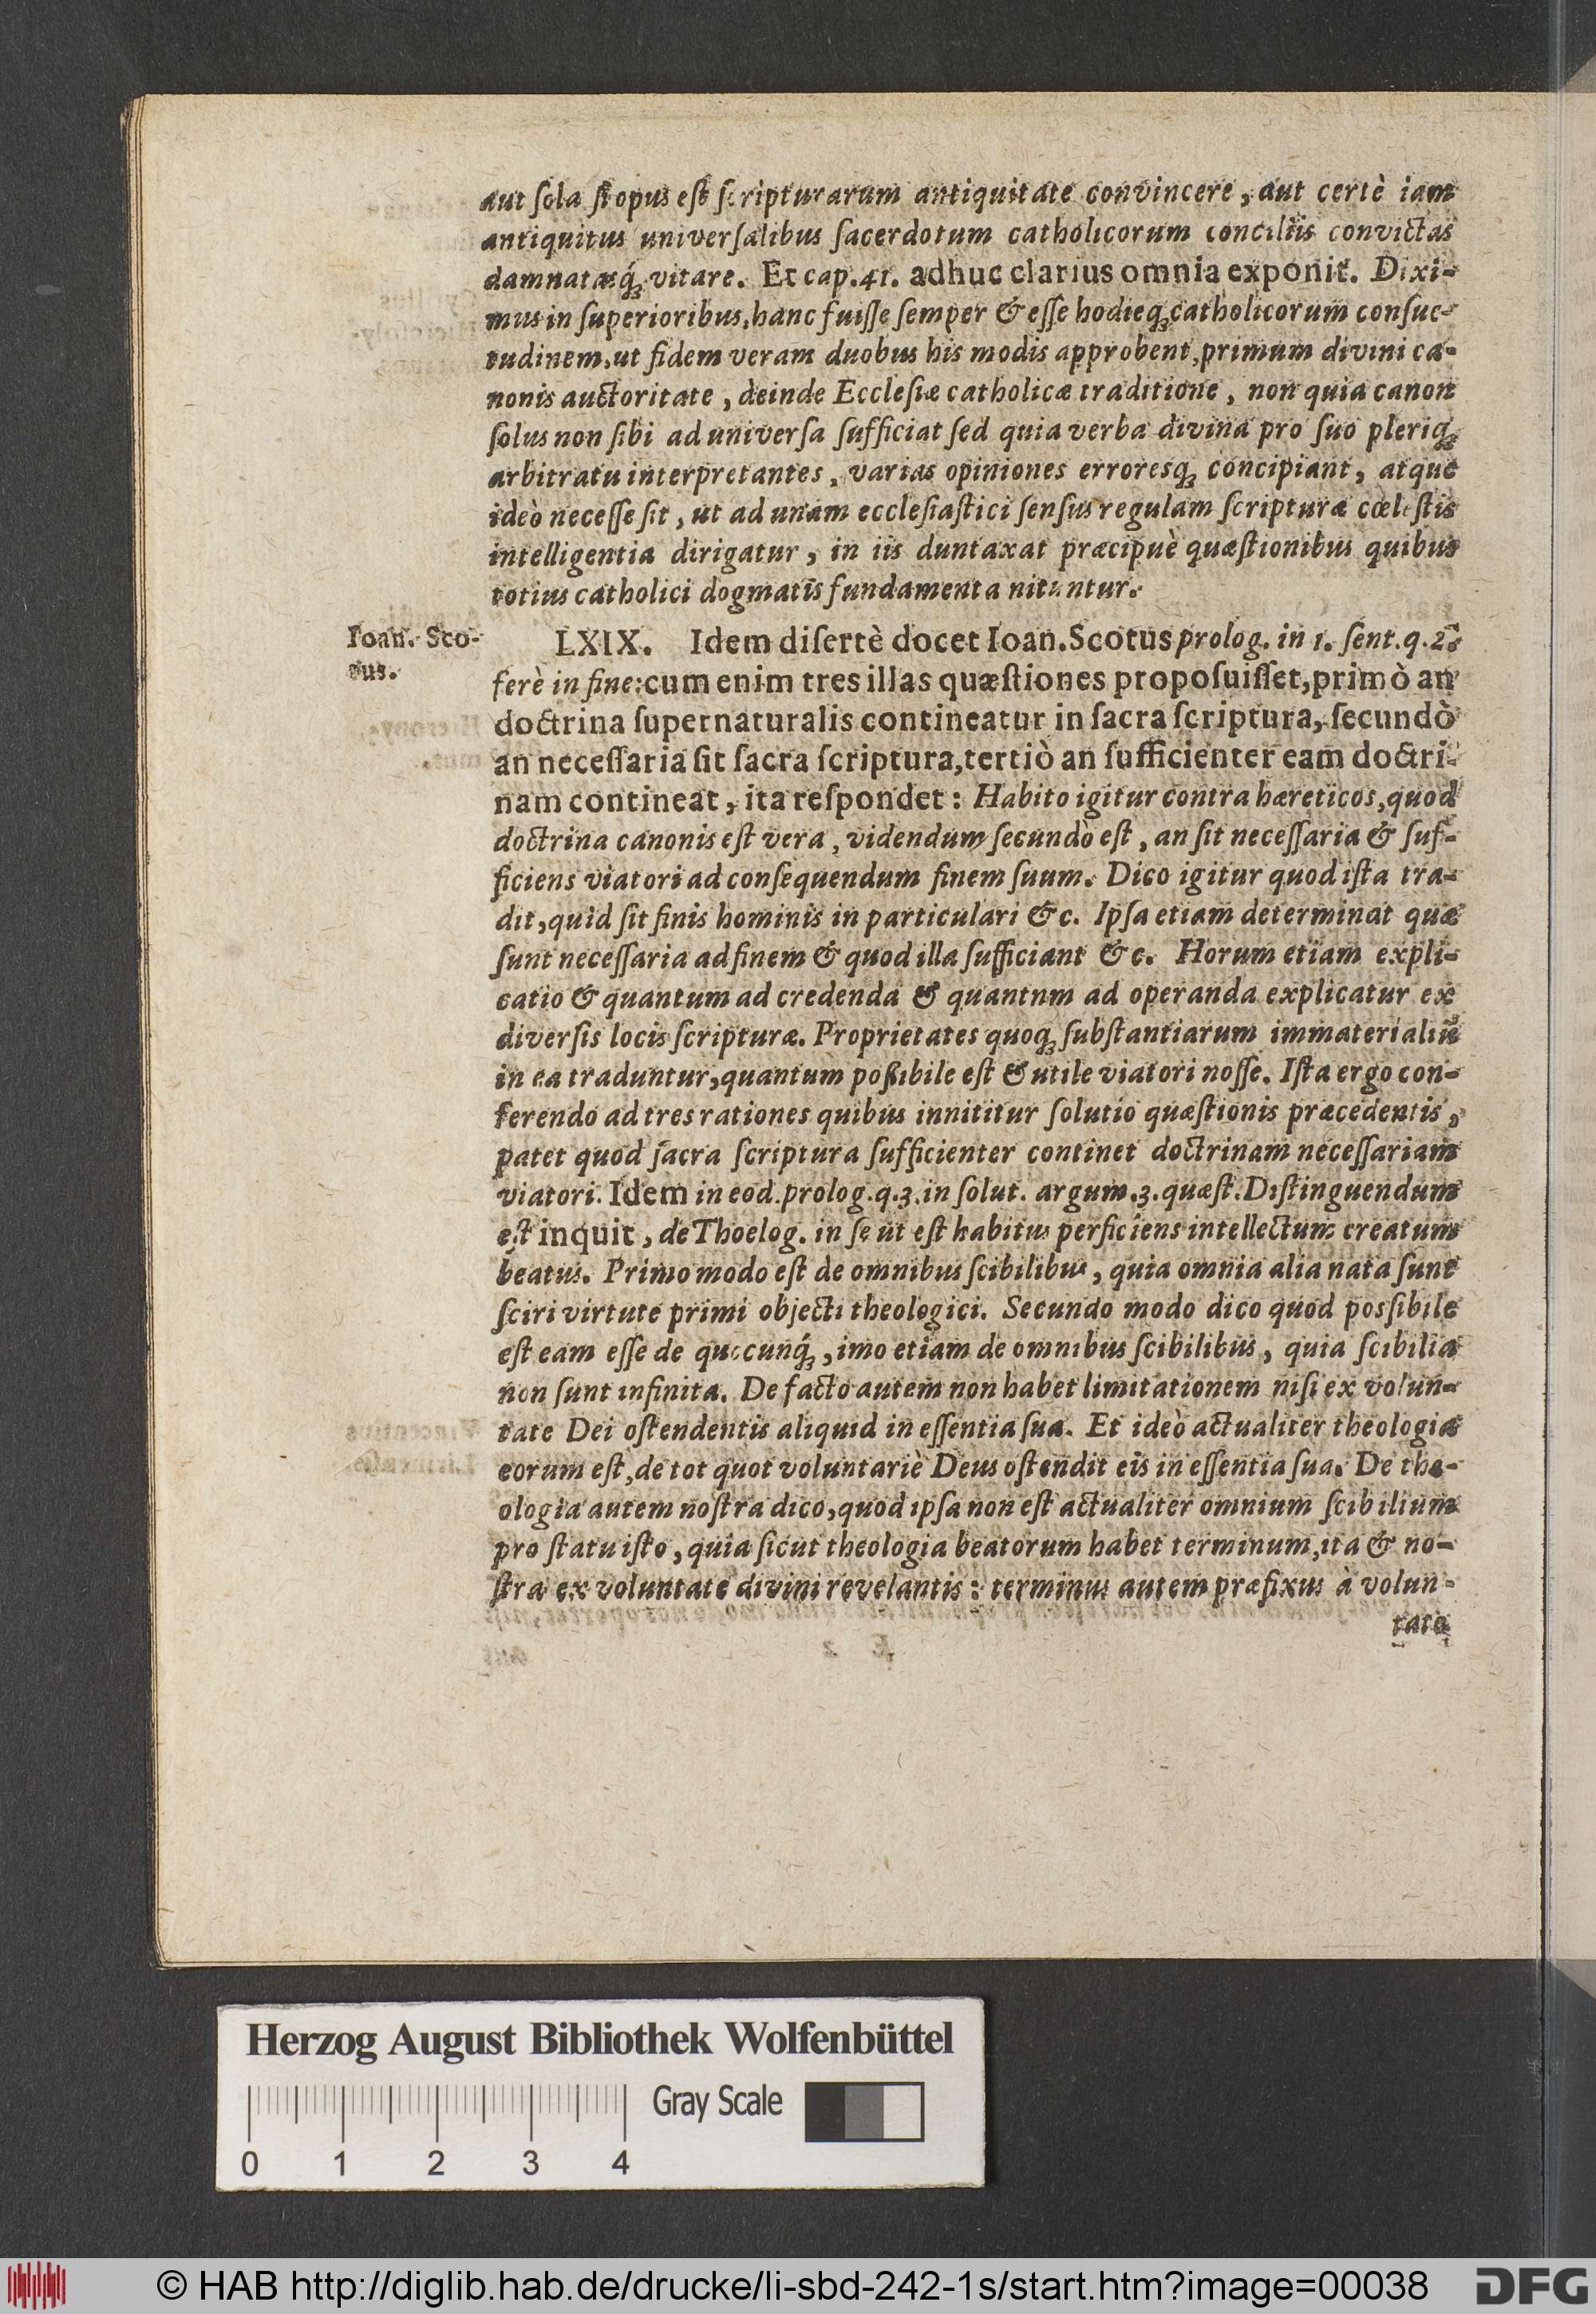 aut ſola ſi opus eſt ſcripturarum antiquitate convincere, aut certè iam
antiquitus univerſalibus ſacerdotum catholicorum conciliis convictas
damnatasq́ꝫ vitare. Et cap. 41. adhuc clarius omnia exponit. Dixi-
mus in ſuperioribus, hanc fuiſſe ſemper & eſſe hodieqꝫ catholicorum conſue-
tudinem, ut fidem veram duobus his modis approbent, primum divini ca-
nonis auctoritate, deinde Eccleſiæ catholicæ traditione, non quia canon
ſolus non ſibi ad univerſa ſufficiat ſed quia verba divina pro ſuo pleriqꝫ
arbitratu interpretantes, varias opiniones erroresqꝫ concipiant, atque
ideò neceſſe ſit, ut ad unam eccleſiaſtici ſenſus regulam ſcripturæ cœleſtis
intelligentia dirigatur, in iis duntaxat præcipuè quæſtionibus quibus
totius catholici dogmatis fundamenta nituntur.
Ioan. Sco-
tus.
LXIX. Idem diſertè docet Ioan. Scotus prolog. in 1. ſent. q. 2.
ferè in fine: cum enim tres illas quæſtiones propoſuiſſet, primò an
doctrina ſupernaturalis contineatur in ſacra ſcriptura, ſecundò
an neceſſaria ſit ſacra ſcriptura, tertiò an ſufficienter eam doctri-
nam contineat, ita reſpondet: Habito igitur contra hæreticos, quod
doctrina canonis eſt vera, videndum ſecundò eſt, an ſit neceſſaria & ſuf-
ficiens viatori ad conſequendum finem ſuum. Dico igitur quod iſta tra-
dit, quid ſit finis hominis in particulari &c. Ipſa etiam determinat quæ
ſunt neceſſaria ad finem & quod illa ſufficiant &c. Horum etiam expli-
catio & quantum ad credenda & quantnm ad operanda explicatur ex
diverſis locis ſcripturæ. Proprietates quoqꝫ ſubſtantiarum immaterialiũ
in ea traduntur, quantum poßibile eſt & utile viatori noſſe. Iſta ergo con-
ferendo ad tres rationes quibus innititur ſolutio quæſtionis præcedentis,
patet quod ſacra ſcriptura ſufficienter continet doctrinam neceſſariam
viatori. Idem in eod. prolog. q. 3. in ſolut. argum. 3. quæſt. Diſtinguendum
eſt inquit, de Thoelog. in ſe ut eſt habitus perficiens intellectum creatum
beatus. Primo modo eſt de omnibus ſcibilibus, quia omnia alia nata ſunt
ſciri virtute primi objecti theologici. Secundo modo dico quod possibile
eſt eam eſſe de quocunq́ꝫ, imo etiam de omnibus ſcibilibus, quia ſcibilia
non ſunt infinita. De facto autem non habet limitationem niſi ex volun-
tate Dei oſtendentis aliquid in eſſentia ſua. Et ideò actualiter theologia
eorum eſt, de tot quot voluntariè Deus oſtendit eis in eſſentia ſua. De the-
ologia autem noſtra dico, quod ipſa non eſt actualiter omnium ſcibilium
pro ſtatu iſto, quia ſicut theologia beatorum habet terminum, ita & no-
ſtra ex voluntate divini revelantis: terminus autem præfixus à volun-
tate
Herzog August Bibliothek Wolfenbüttel
Gray Scale
0 1 2 3 4
© HAB http://diglib.hab.de/drucke/li-sbd-242-1s/start.htm?image=00038
DFG